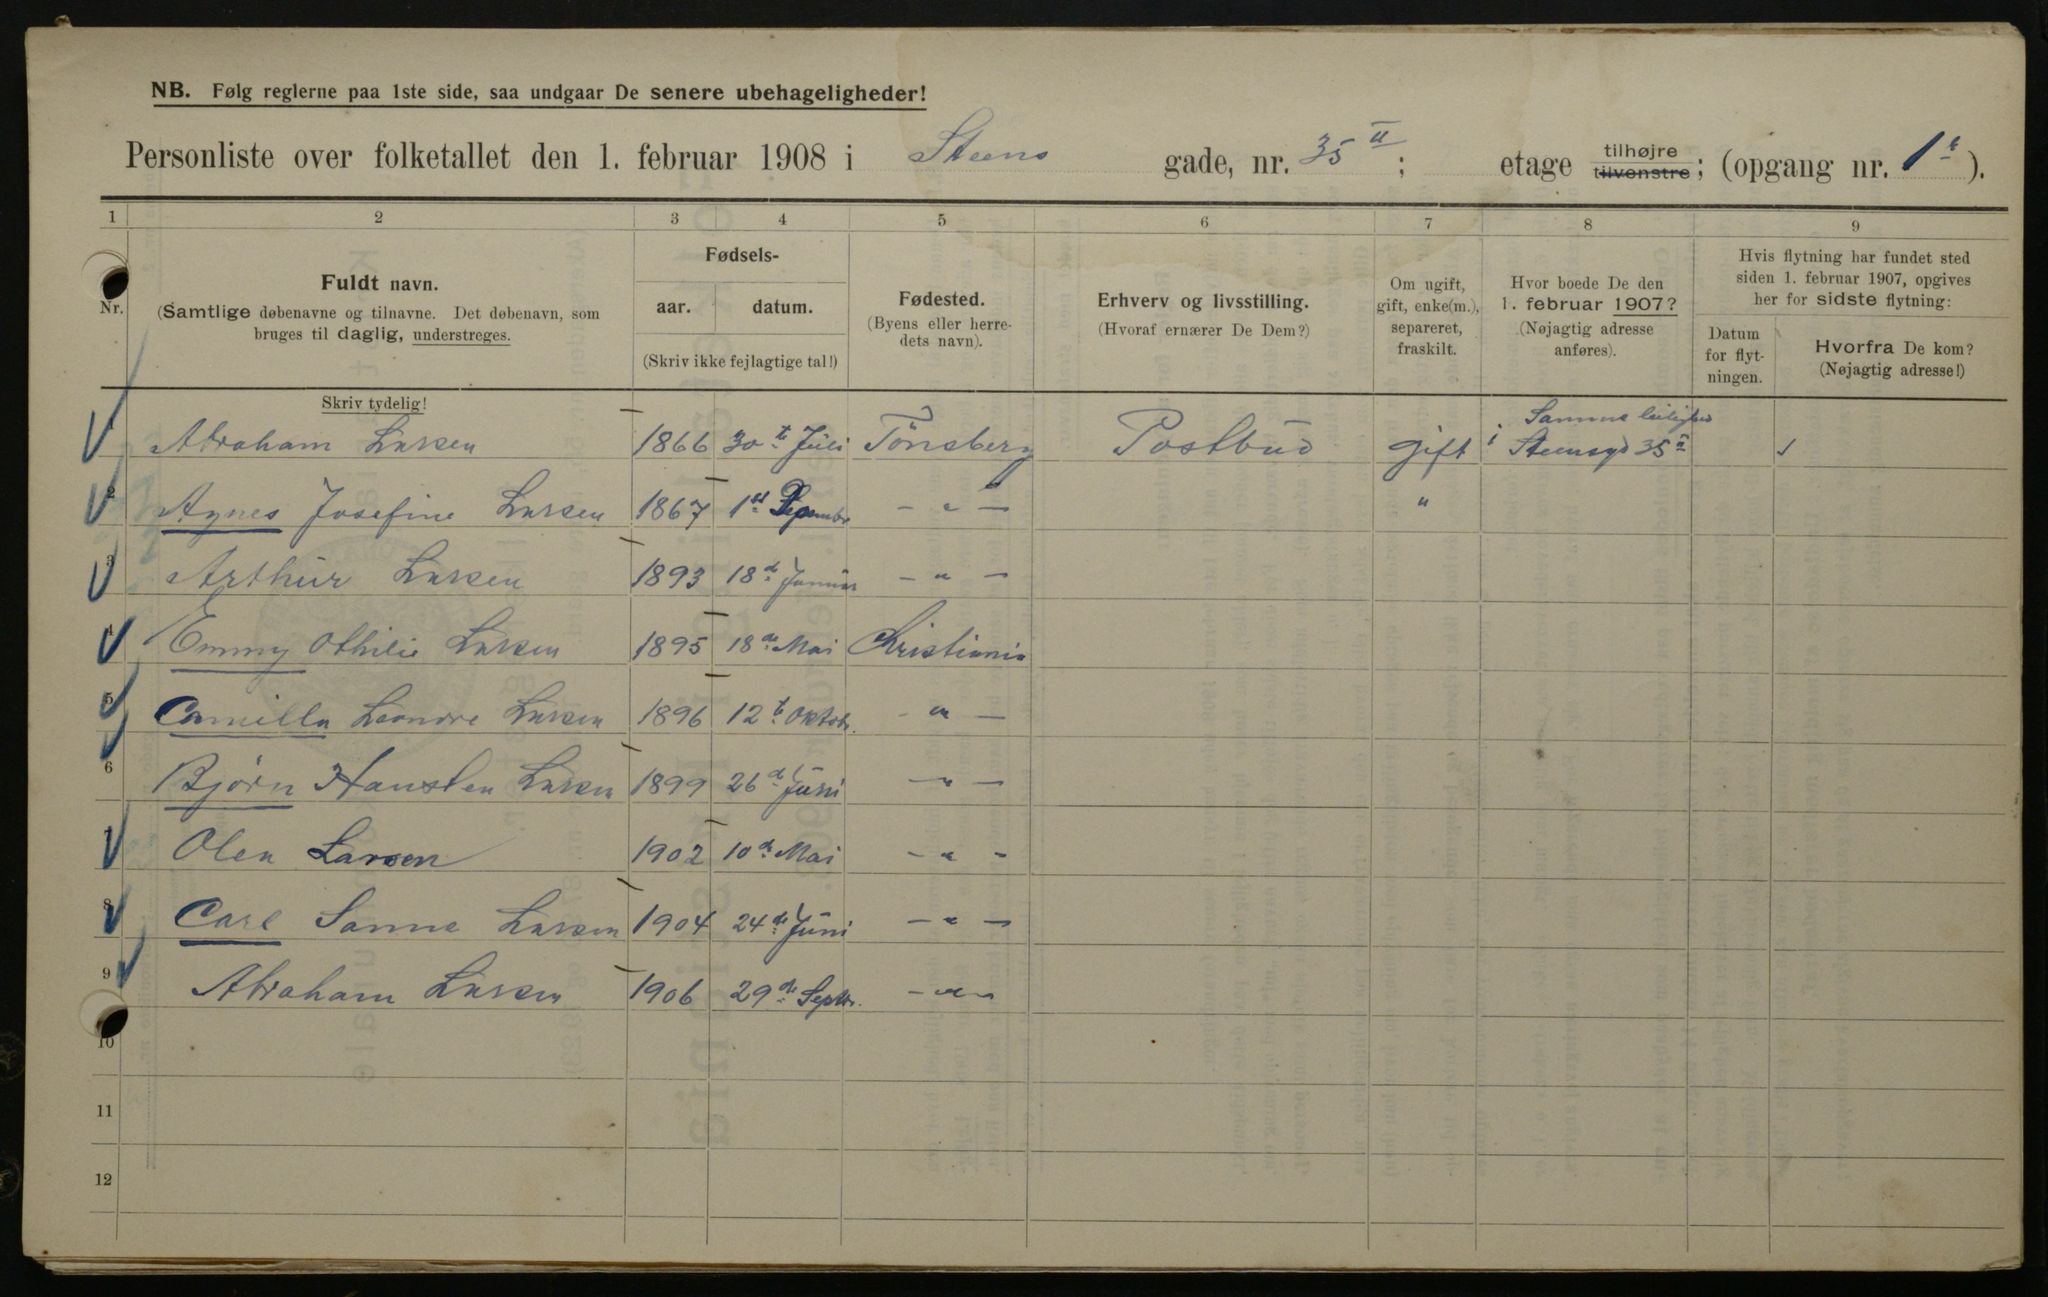 NB. Følg reglerne paa 1ste side, saa undgaar De senere ubehageligheder!
Personliste over folketallet den 1. februar 1908 i Steens gade, nr. 35 II; etage tilhøjre tilvenstre; (opgang nr. 1).
1 2 3 4 5 6 7 8 9
Nr.
Fuldt navn.
(Samtlige døbenavne og tilnavne. Det døbenavn, som
bruges til daglig, understreges.
Skriv tydelig!
Fødsels-
aar. datum.
(Skriv ikke fejlagtige tal!)
Fødested.
(Byens eller herre-
dets navn).
Erhverv og livsstilling.
(Hvoraf ernærer De Dem?)
Om ugift,
gift, enke(m.),
separeret,
fraskilt.
Hvor boede De den
1. februar 1907?
(Nøjagtig adresse
anføres).
Hvis flytning har fundet sted
siden 1. februar 1907, opgives
her for sidste flytning:
Datum
for flyt-
ningen.
Hvorfra De kom?
(Nøjagtig adresse!)
Samme leilighed
1 Abraham Larsen 1866 30te Juli Tönsberg Postbud gift i Steensgd 35 II
2 Agnes Josefine Larsen 1867 1st - " - "
3 Arthur Larsen 1893 18de Januar - " -
4 Emmy Othilie Larsen 1895 18de Mai Kristiania
5 Camilla Leondre Larsen 1896 12te Oktobr. - " -
6 Bjørn Hansten Larsen 1899 26de Juni - " -
7 Olea Larsen 1902 10de Mai - " -
8 Carl Sanne Larsen 1904 24de Juni - " -
9 Abraham Larsen 1906 29de Septbr. - " -
10
11
12